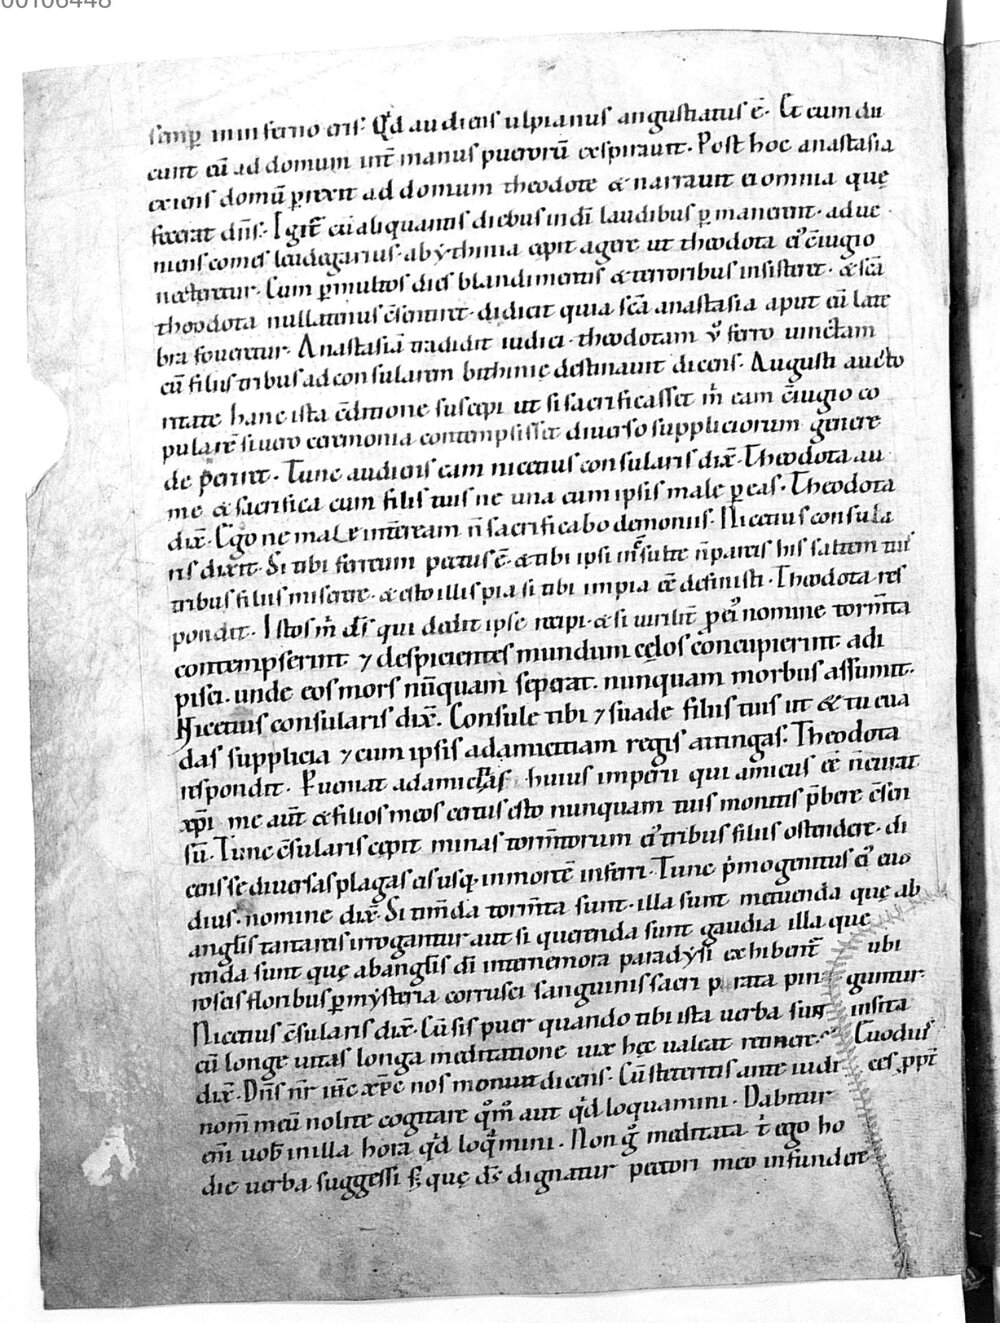 00106448
semp in inferno eris. Qd audiens ulpianus angustiatus ē. Et cum du
cunt eū ad domum int̄ manus puerorū exspirauit. Post hoc anastasia
exiens domū p̄rexit ad domum theodote & narrauit ei omnia quę
fecerat dn̄s. Igit̄ cū aliquantis diebus in dī laudibus p̄manerent. adue
niens comes leudegarius ab ẏthinia cepit agere ut theodota ei' c̄iugio
necteretur. Cum p̄ multos dies blandimentis & terroribus insisteret. & sc̄a
theodota nullatenus c̄sentiret. didicit quia sc̄a anastasia aput eū late
bra foueretur. Anastasiā tradidit iudici. theodotam v̊ ferro uinctam
cū filiis tribus ad consularem bithinię destinauit dicens. Augusti aucto
ritate hanc ista c̄ditione suscepi ut si sacrificasset m̄ eam c̄iugio co
pularē si uero ceremonia contempsisset diuerso suppliciorum genere
de periret. Tunc audiens eam nicetius consularis dix̄. Theodota au
me & sacrifica cum filiis tuis ne una cum ipsis male p̄eas. Theodota
dix̄. Ego ne male inteream n̄ sacrificabo demoniis. Nicetius consula
ris dixit. Si tibi ferreum pectus ē. & tibi ipsi n̄ parcis his saltem tuis
tribus filiis miserere. & esto illis pia si tibi impia eē definisti. Theodota res
pondit. Istos m̄ ds̄ qui dedit ipse recipi. & si uirilit̄ p̄ ei' nomine torm̄ta
contempserint 7 despicientes mundum cęlos c̄oncupierint adi
pisci. unde eos mors nūquam seperat. nunquam morbus assumit.
Nicetius consularis dix̄. Consule tibi 7 suade filiis tuis ut & tu eua
das supplicia 7 cum ipsis ad amicitiam regis attingas. Theodota
respondit. P̄ueniat ad amicitias huius imperii qui amicus eē n̄ curat
xp̄i me aut̄ & filios meos certus esto nunquam tuis monitis p̄bere c̄sen
sū. Tunc c̄sularis cepit minas torm̄torum ei' tribus filiis ostendere. di
cens se diuersas plagas eis usq. in mortē inferri. Tunc p̄mogenitus ei' euo
dius. nomine dix̄. Si tim̄da torm̄ta sunt. illa sunt metuenda quę ab
anglis tartareis irrogantur aut si querenda sunt gaudia illa que
renda sunt quę ab anglis dī inter nemora paradẏsi exhibent̄ ubi
roseis floribus p̄ mẏsteria corrusci sanguinis sacri p rata pin guntur.
Nicetius c̄sularis dix̄. Cū sis puer quando tibi ista uerba sunt insita
cū longe uitas longa meditatione uix hęc ualeat retinere. Euodius
dix̄. Dn̄s nr̄ ih̄c xp̄c nos monuit dicens. Cū steteritis ante iudi ces. ppt̄
nom̄ meū nolite cogitare qm̄ aut qd loquamini. Dabitur
em̄ uob in illa hora qd loqmini. Non g meditata t̄ ego ho
die uerba suggessi s; quę ds̄ dignatur pectori meo infundere